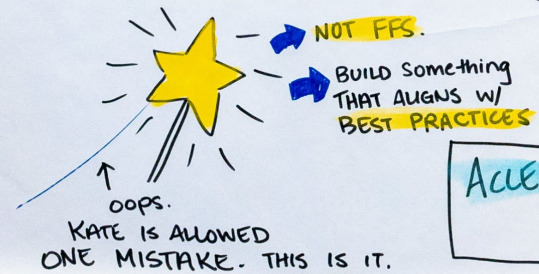 NOT FFS.
BUILD Something
THAT ALIGNS W/
BEST PRACTICES
ACCE
OOPS.
KATE IS ALLOWED
ONE MISTAKE. THIS IS IT.